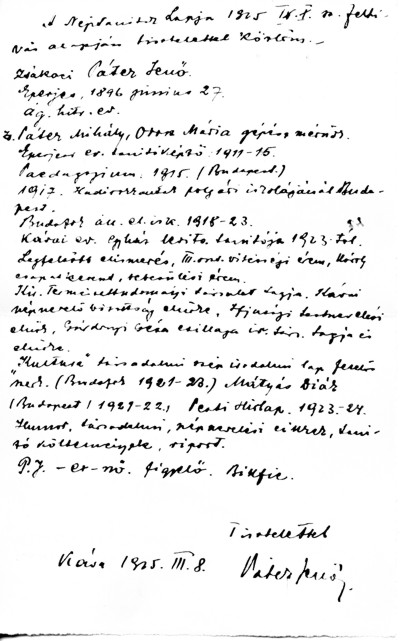 A Néptanitók Lapja 1925 IV. 1. sz. felhi-
vás alapján tisztelettel közlöm. —
Zsákai Páter Jenő.
Eperjes, 1896 junius 27.
ág. hitv. ev.
Sz. Páter Mihály, Orosz Mária gépész mérnök.
Eperjesi ev. tanitóképző 1911–15.
Paedagogium. 1915. (Budapest.)
1917. polgári iskolájánál Buda-
pest.
Budafok áll. el. isk. 1918–23.
Kávai ev. egyház levita tanitója 1923-tól.
Legfelsőbb elismerés, III. oszt. vitézségi érem, Károly
csapatkereszt, sebesülési érem.
Kir. Természettudományi társulat tagja. Kávai
népnevelő bizottság elnöke, Ifjusági testnevelési
elnök, Gárdonyi Géza ir. társ. tagja és
elnöke.
"Kultura" társadalmi szépirodalmi lap
(Budafok 1921–23.) Mátyás Diák
(Budapest) 1921–22., Pesti Hirlap. 1923–24.
Humor, társadalmi, népnevelési cikkek, tani-
tó költemények, riport.
P. J. – er–nő. Figyelő.
Tisztelettel
Káva 1925. III. 8. Páter Jenő